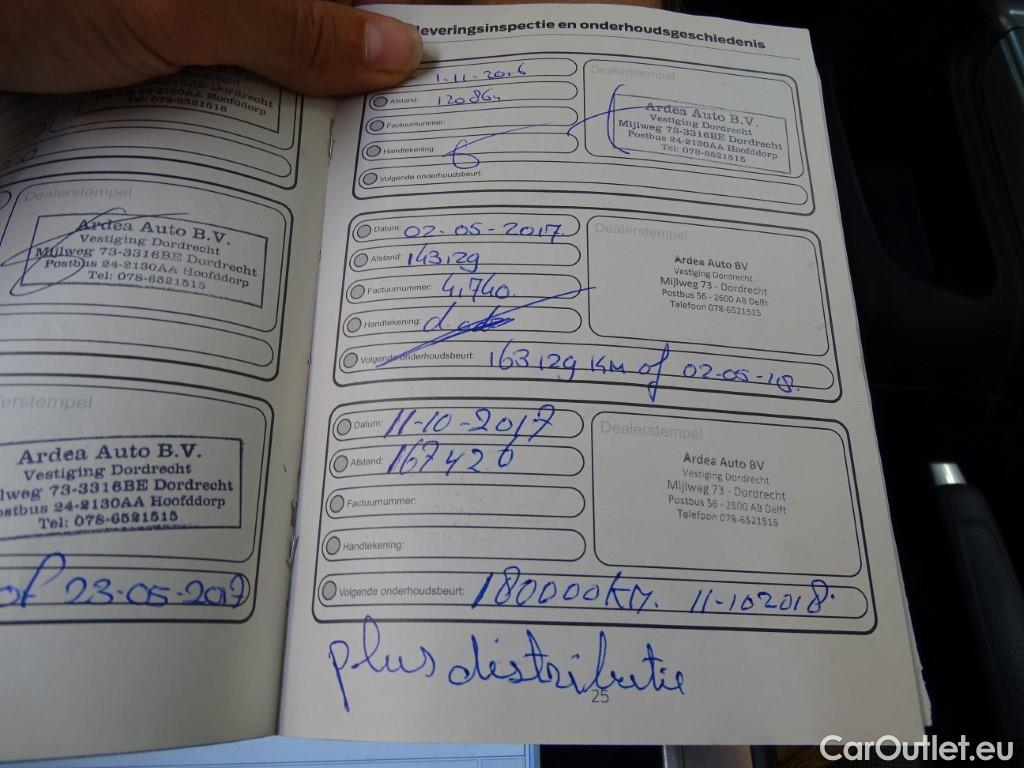 Tel: 078-6521515
Dealerstempel
Ardea Auto B.V.
Vestiging Dordrecht
Mijlweg 73-3316BE Dordrecht
Postbus 24-2130AA Hoofddorp
Tel: 078-6521515
erstempel
Ardea Auto B.V.
Vestiging Dordrecht
lweg 73-3316BE Dordrecht
ostbus 24-2130AA Hoofddorp
Tel: 078-6521515
of 23-05-2017
leveringsinspectie en onderhoudsgeschiedenis
1-11-2016
Afstand:
Factuurnummer:
Handtekening:
Volgende onderhoudsbeurt:
Dealerstempel
Ardea Auto B.V.
Vestiging Dordrecht
Mijlweg 73-3316BE Dordrecht
Postbus 24-2130AA Hoofddorp
Tel: 078-6521515
Datum: 02-05-2017
Afstand: 143129
Factuurnummer: 4,740
Handtekening:
Volgende onderhoudsbeurt: 163129 KM of 02-05-18.
Dealerstempel
Ardea Auto BV
Vestiging Dordrecht
Mijlweg 73 - Dordrecht
Postbus 56 - 2600 AB Delft
Telefoon 078-6521515
Datum: 11-10-2017
Afstand: 167426
Factuurnummer:
Handtekening:
Volgende onderhoudsbeurt: 180000KM. 11-102018.
Dealerstempel
Ardea Auto BV
Vestiging Dordrecht
Mijlweg 73 - Dordrecht
Postbus 56 - 2600 AB Delft
Telefoon 078-6521515
plus distributie
25
CarOutlet.eu